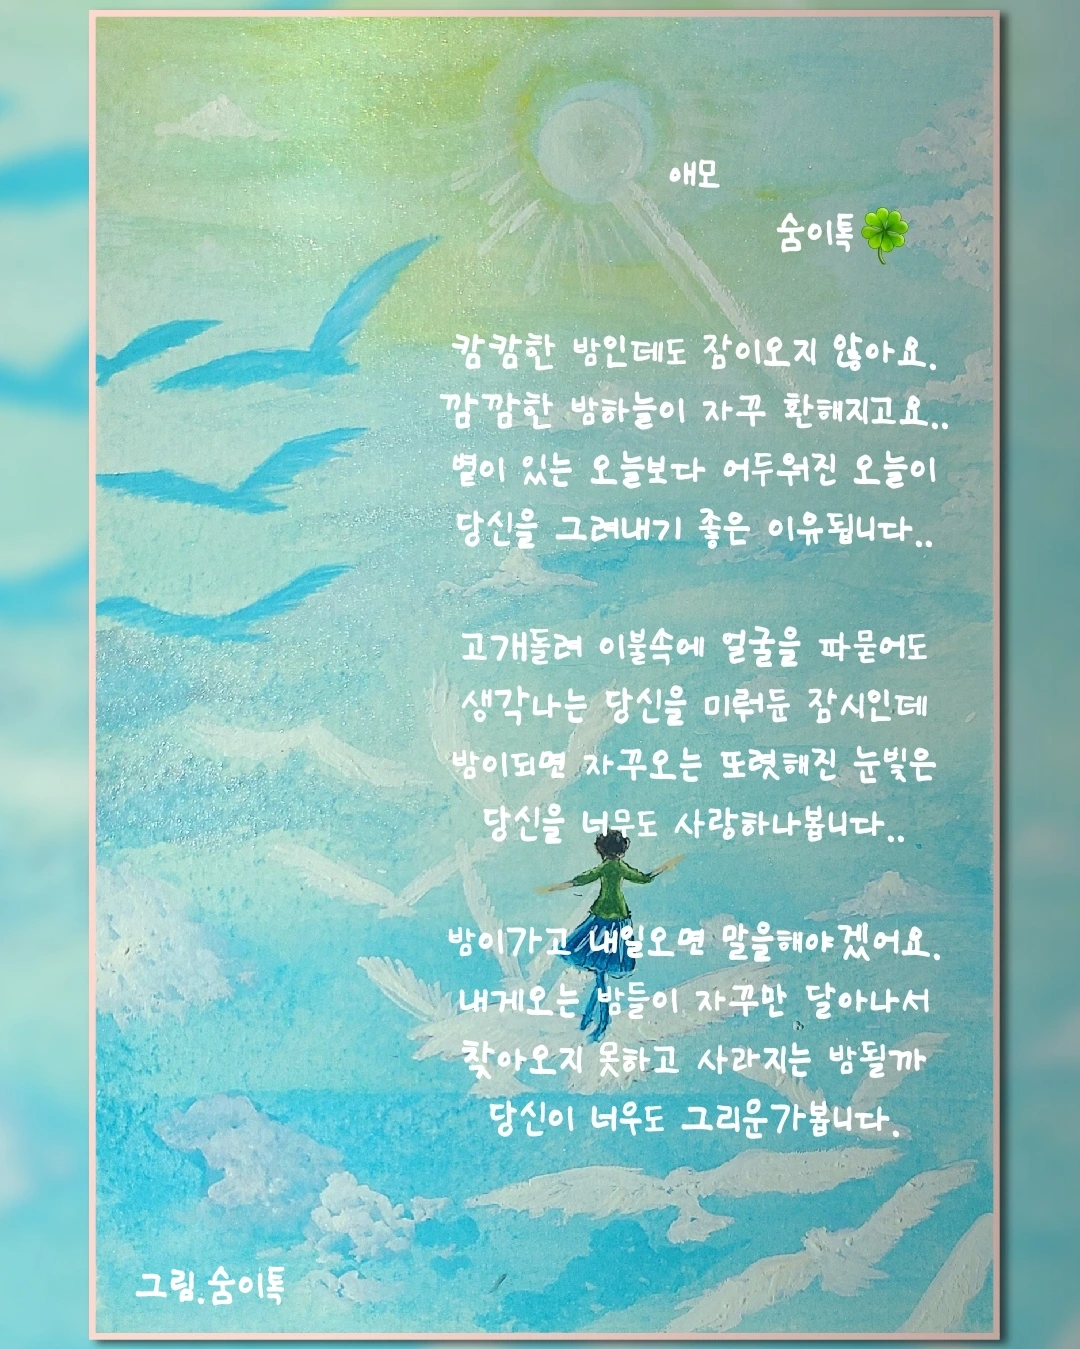 애모
숨이톡🍀
캄캄한 밤인데도 잠이오지 않아요.
깜깜한 밤하늘이 자꾸 환해지고요..
볕이 있는 오늘보다 어두워진 오늘이
당신을 그려내기 좋은 이유됩니다..
고개돌려 이불속에 얼굴을 파묻어도
생각나는 당신을 미뤄둔 잠시인데
밤이되면 자꾸오는 또렷해진 눈빛은
당신을 너무도 사랑하나봅니다..
밤이가고 내일오면 말을해야겠어요.
내게오는 밤들이 자꾸만 달아나서
찾아오지 못하고 사라지는 밤될까
당신이 너우도 그리운가봅니다.
그림.숨이톡